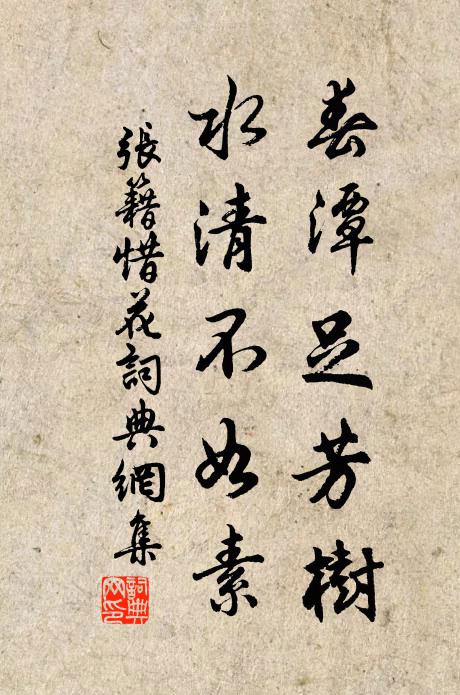 春潭足芳樹
水清不如素
張籍惜花詞典網集
詞典
网印